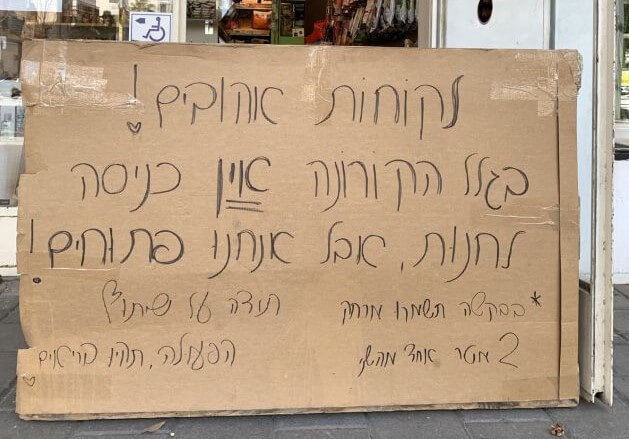 לקוחות אהובים!
בגלל הקורונה אין כניסה
לחנות, אבל אנחנו פתוחים!
*בבקשה תשמרו מרחק
2 מטר אחד מהשני
תודה על שיתוף
הפעולה, תהיו בריאים